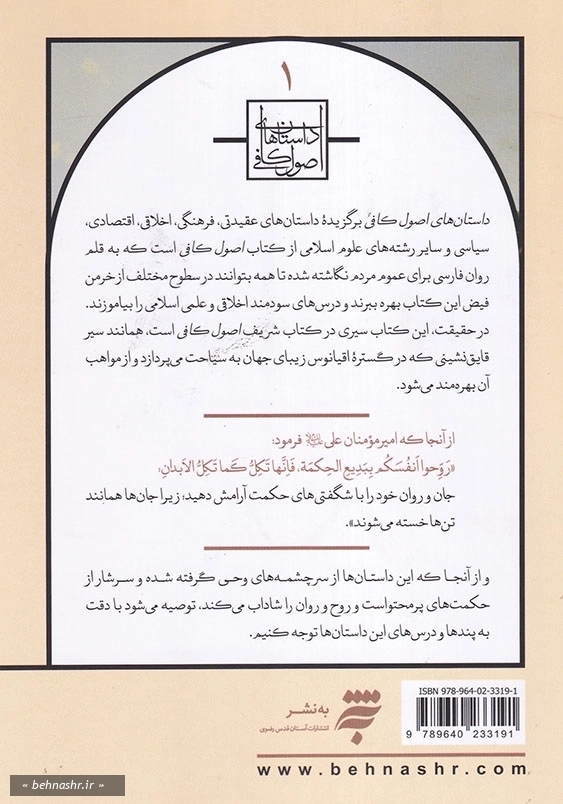 ۱
داستان‌های
اصول کافی
داستان‌های اصول کافی برگزیدهٔ داستان‌های عقیدتی، فرهنگی، اخلاقی، اقتصادی،
سیاسی و سایر رشته‌های علوم اسلامی از کتاب اصول کافی است که به قلم
روان فارسی برای عموم مردم نگاشته شده تا همه بتوانند در سطوح مختلف از خرمن
فیض این کتاب بهره ببرند و درس‌های سودمند اخلاقی و علمی اسلامی را بیاموزند.
در حقیقت، این کتاب سیری در کتاب شریف اصول کافی است، همانند سیر
قایق‌نشینی که در گسترهٔ اقیانوس زیبای جهان به سیاحت می‌پردازد و از مواهب
آن بهره‌مند می‌شود.
از آنجا که امیرمؤمنان علی علیه‌السلام فرمود:
«رَوِّحوا اَنفُسَکُم بِبَدیعِ الحِکمَة، فَاِنَّها تَکِلُّ کَما تَکِلُّ الاَبدان؛
جان و روان خود را با شگفتی‌های حکمت آرامش دهید؛ زیرا جان‌ها همانند
تن‌ها خسته می‌شوند».
و از آنجا که این داستان‌ها از سرچشمه‌های وحی گرفته شده و سرشار از
حکمت‌های پرمحتواست و روح و روان را شاداب می‌کند، توصیه می‌شود با دقت
به پندها و درس‌های این داستان‌ها توجه کنیم.
به‌نشر
انتشارات آستان قدس رضوی
ISBN 978-964-02-3319-1
9 789640 233191
www.behnashr.com
« behnashr.ir »